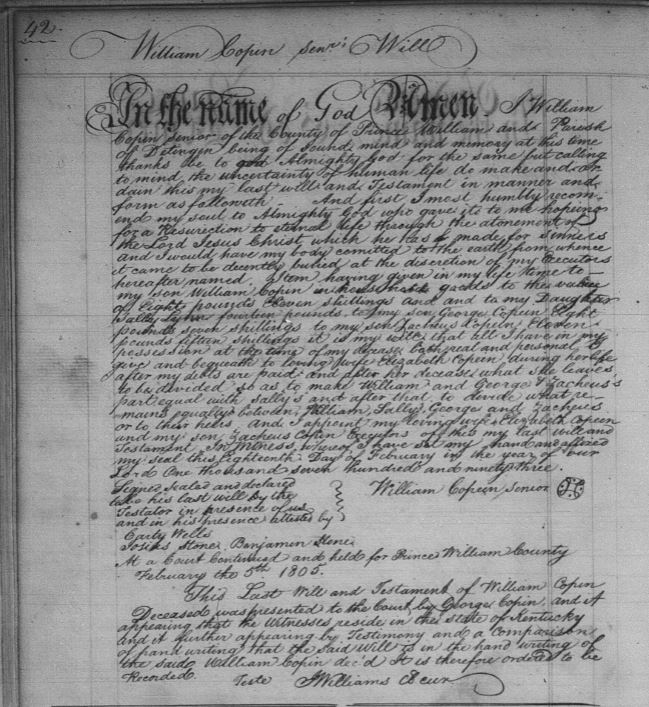 42.
William Copin Senr:s Will
In the name of God Amen. I William
Copin Senior of the County of Prince William and Parish
of Detingen being of Sound mind and memory at this time
thanks be to god Almighty God for the same but calling
to mind the uncertainty of human life do make and or
dain this my last will and Testament in manner and
form as followeth. And first I most humbly recom-
end my soul to Almighty God who gave it to me hopeing
for a Resurection to eternal life through the atonement of
the Lord Jesus Christ which he has made for Sinners
and I would have my body comitted to the earth from whence
it came to be decently buried at the discretion of my Executors
hereafter named. Item having given in my life time to
my son William Copin in goods to the value
of Eight pounds Eleven shillings and and to my Daughter
Sally fourteen pounds, to my son George Copein Eight
pounds seven shillings to my son Zacheus Copein, Eleven
pounds fifteen shillings it is my will that all I have in my
possession at the time of my decease both real and personal I
give and bequeath to loving wife Elizabeth Copein during her life
after my debts are paid and after her decease what she leaves
to be divided so as to make William and George & Zacheus's
part equal with Sally's and after that to divide what re-
mains equally between William, Sally, George and Zacheus
or to their heirs. And I appoint my loving wife Elizabeth Copein
and my son Zacheus Copein Executors of this my last will and
Testament. In Witness whereof I have set my hand and affixed
my seal this Eighteenth Day of February in the year of our
Lord One thousand seven hundred and ninety three.
Signed Sealed and declared
to be his last will by the
Testator in presence of us
and in his presence attested by
William Copein Senior
Carty Wells
Josias Stone, Benjamin Stone
At a Court Continued and held for Prince William County
February the 5th 1805.
This Last Will and Testament of William Copin
Deceased was presented to the Court by George Copin and it
appearing that the Witnesses reside in the State of Kentucky
and it further appearing by Testimony and a Comparison
of hand writing that the said Will is in the hand writing of
the said William Copin dec'd It is therefore ordered to be
Recorded.
Teste JWilliams Cl cur